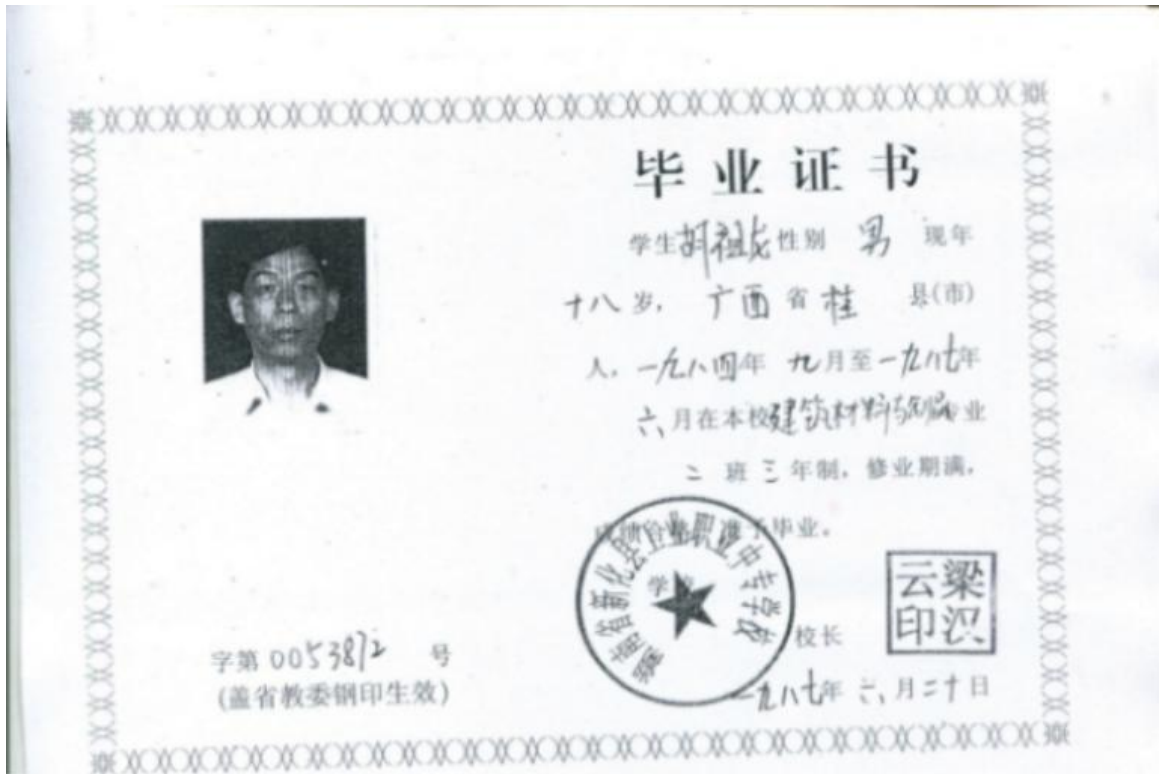 毕业证书
学生胡祖龙性别 男 现年
十八岁，广西省桂 县(市)
人，一九八四年 九月至一九八七年
六月在本校建筑材料与 专业
二 班三年制，修业期满，
准予毕业。
学校
湖南省新化县 职业中专学校
校长
梁 云印
一九八七年 六月二十日
字第 0053872 号
(盖省教委钢印生效)